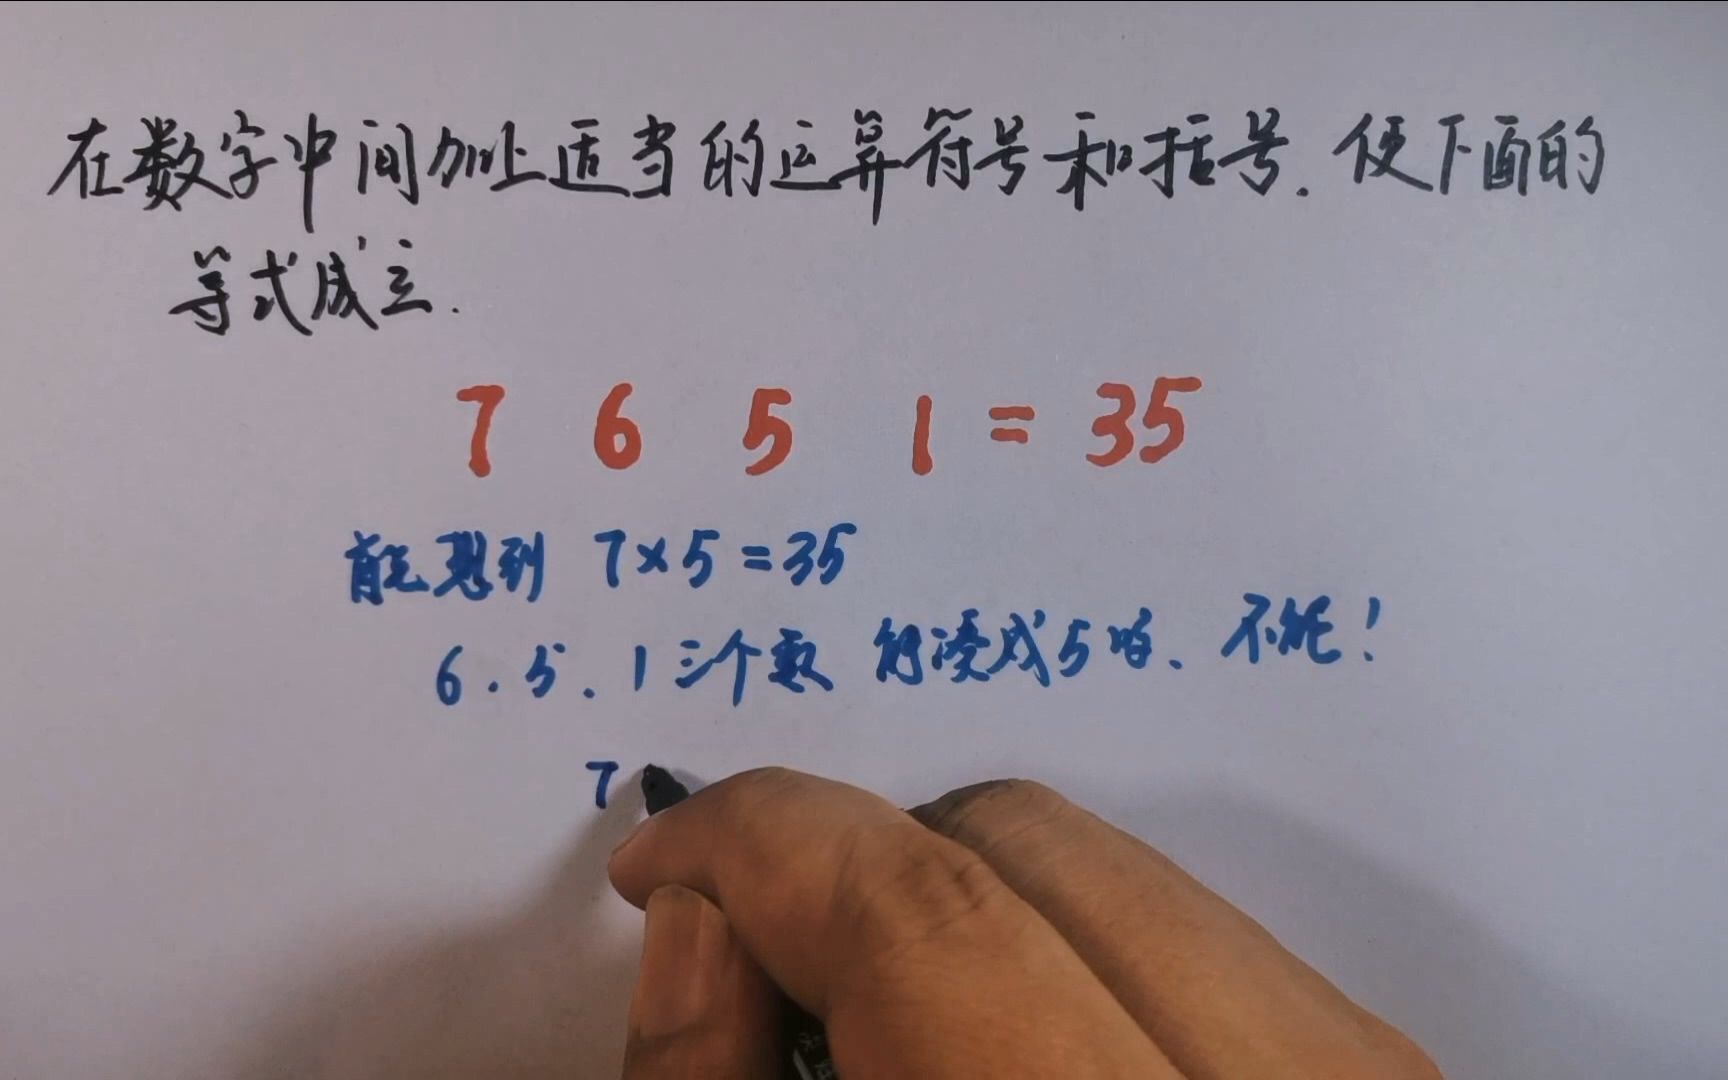 在数字中间加上适当的运算符号和括号.使下面的
等式成立.
7 6 5 1 = 35
能想到 7×5=35
6.5.1三个数 能凑成5吗、不能!
7